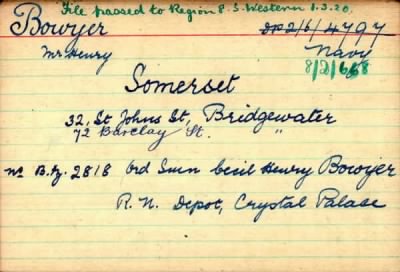 File passed to Region 8. S. Western 1.3.20.
Bowyer DP2/6/4797
Mr Henry Navy
8/2/668
Somerset
32, St Johns St, Bridgewater
72 Barclay St. "
No B.Z. 2818 Ord Smn Cecil Henry Bowyer
R.N. Depot, Crystal Palace